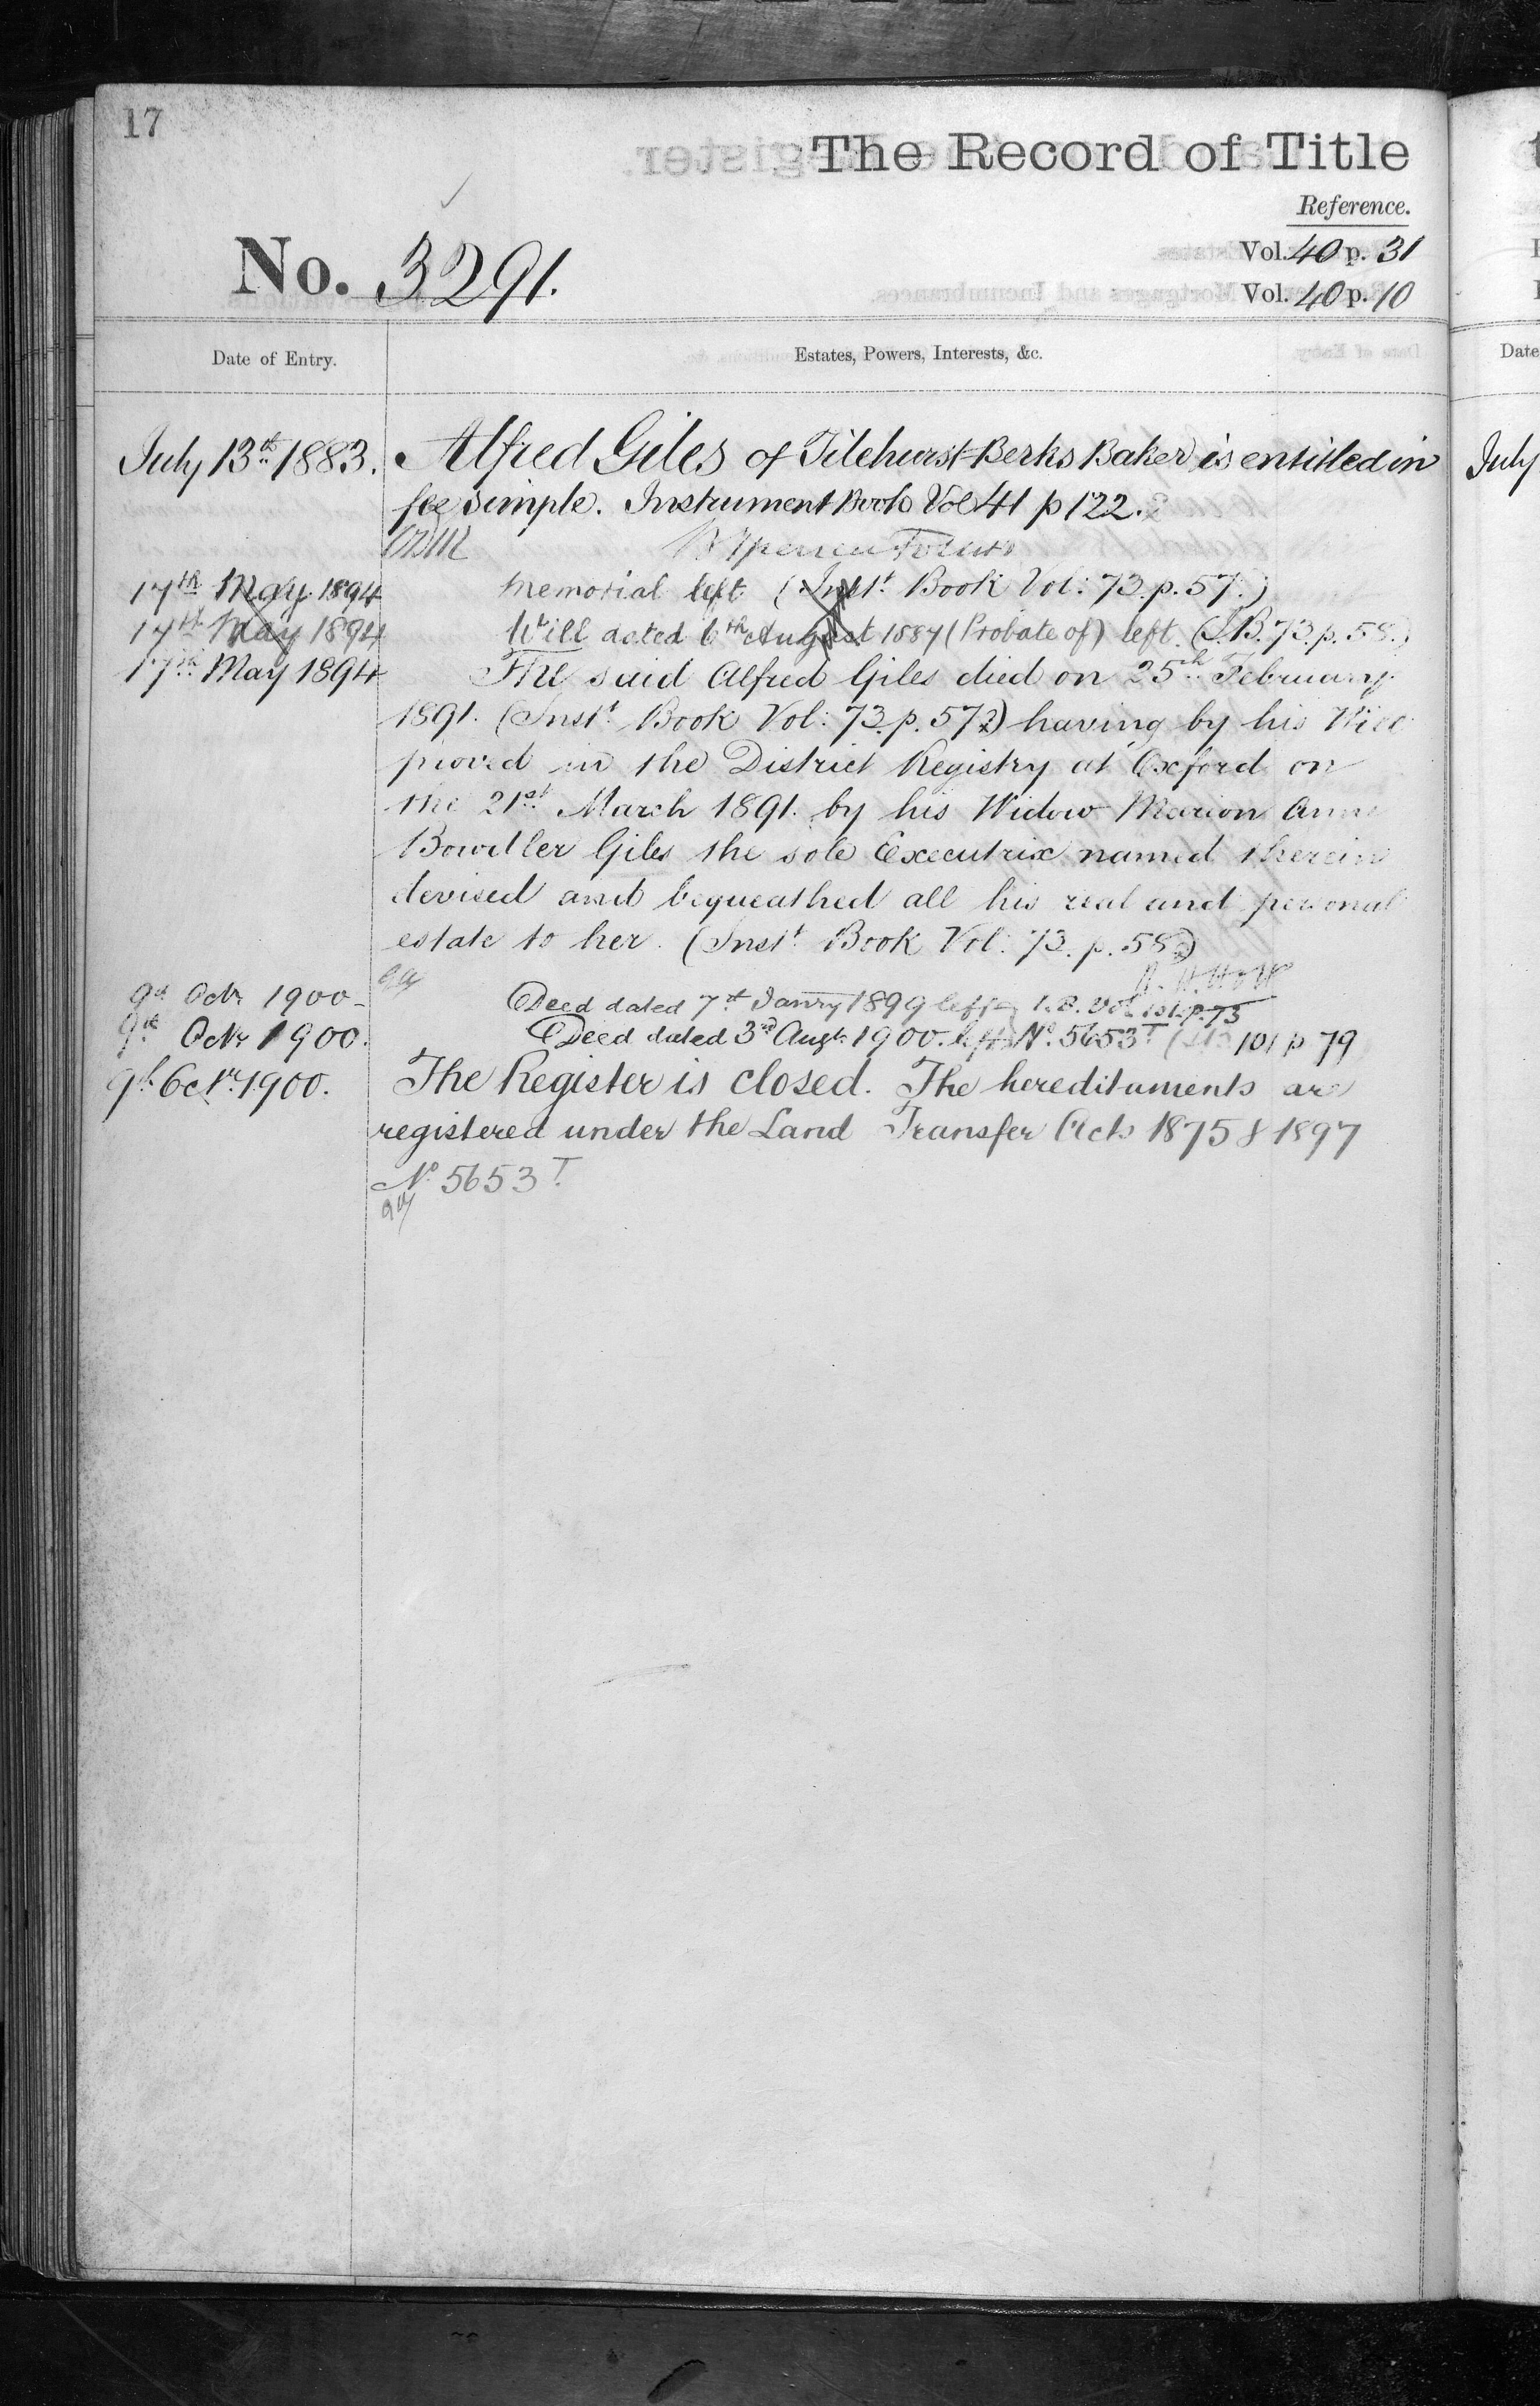 17
The Record of Title
Reference.
Vol. 40 p. 31
No. 3291.
Vol. 40 p. 10
Date of Entry.
Estates, Powers, Interests, &c.
Date
July 13th 1883. Alfred Giles of Tilehurst Berks Baker is entitled in
July
fee simple. Instrument Book Vol 41 p 122.
17th May 1894 Memorial left (Inst. Book Vol: 73. p. 57.)
17th May 1894 Will dated 6th August 1887 (Probate of) left. (I.B. 73. p. 58.)
17th May 1894 The said Alfred Giles died on 25th February
1891. (Inst. Book Vol: 73. p. 57) having by his Will
proved in the District Registry at Oxford on
the 21st March 1891. by his Widow Marion Anne
Bowdler Giles the sole Executrix named therein
devised and bequeathed all his real and personal
estate to her. (Inst. Book Vol: 73. p. 58)
9th Octr 1900 Deed dated 7th Janry 1899 left I.B. Vol 101. p. 75
9th Octr 1900. Deed dated 3rd Augt 1900. left No. 5653T 101 p 79
9th Octr 1900. The Register is closed. The hereditaments are
registered under the Land Transfer Acts 1875 & 1897
No 5653 T.